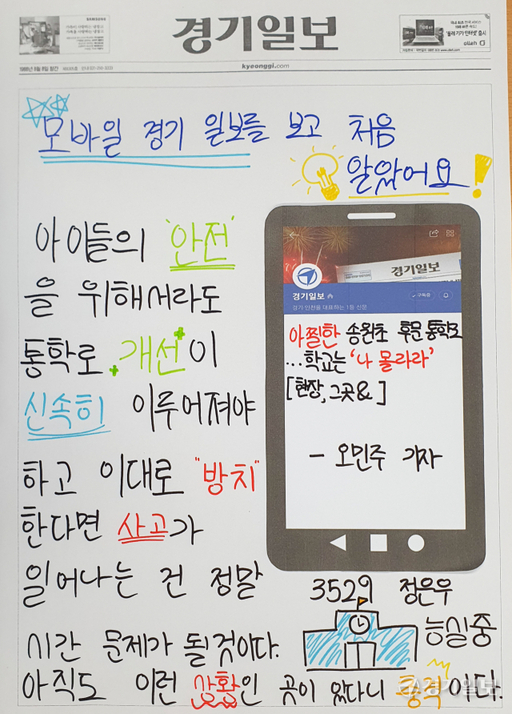 경기일보
kyeonggi.com
모바일 경기 일보를 보고 처음
알았어요!
아이들의 '안전'
을 위해서라도
통학로 '개선'이
신속히 이루어져야
하고 이대로 "방치"
한다면 사고가
일어나는 건 정말
시간 문제가 될것이다.
아직도 이런 상황인 곳이 있다니 충격이다.
경기일보
경기일보
경기·인천을 대표하는 1등 신문
구독중
아찔한 송원초 후문 통학로
...학교는 '나 몰라라'
[현장, 그곳& ]
- 오민주 기자
3529 정은우
능실중
경기일보